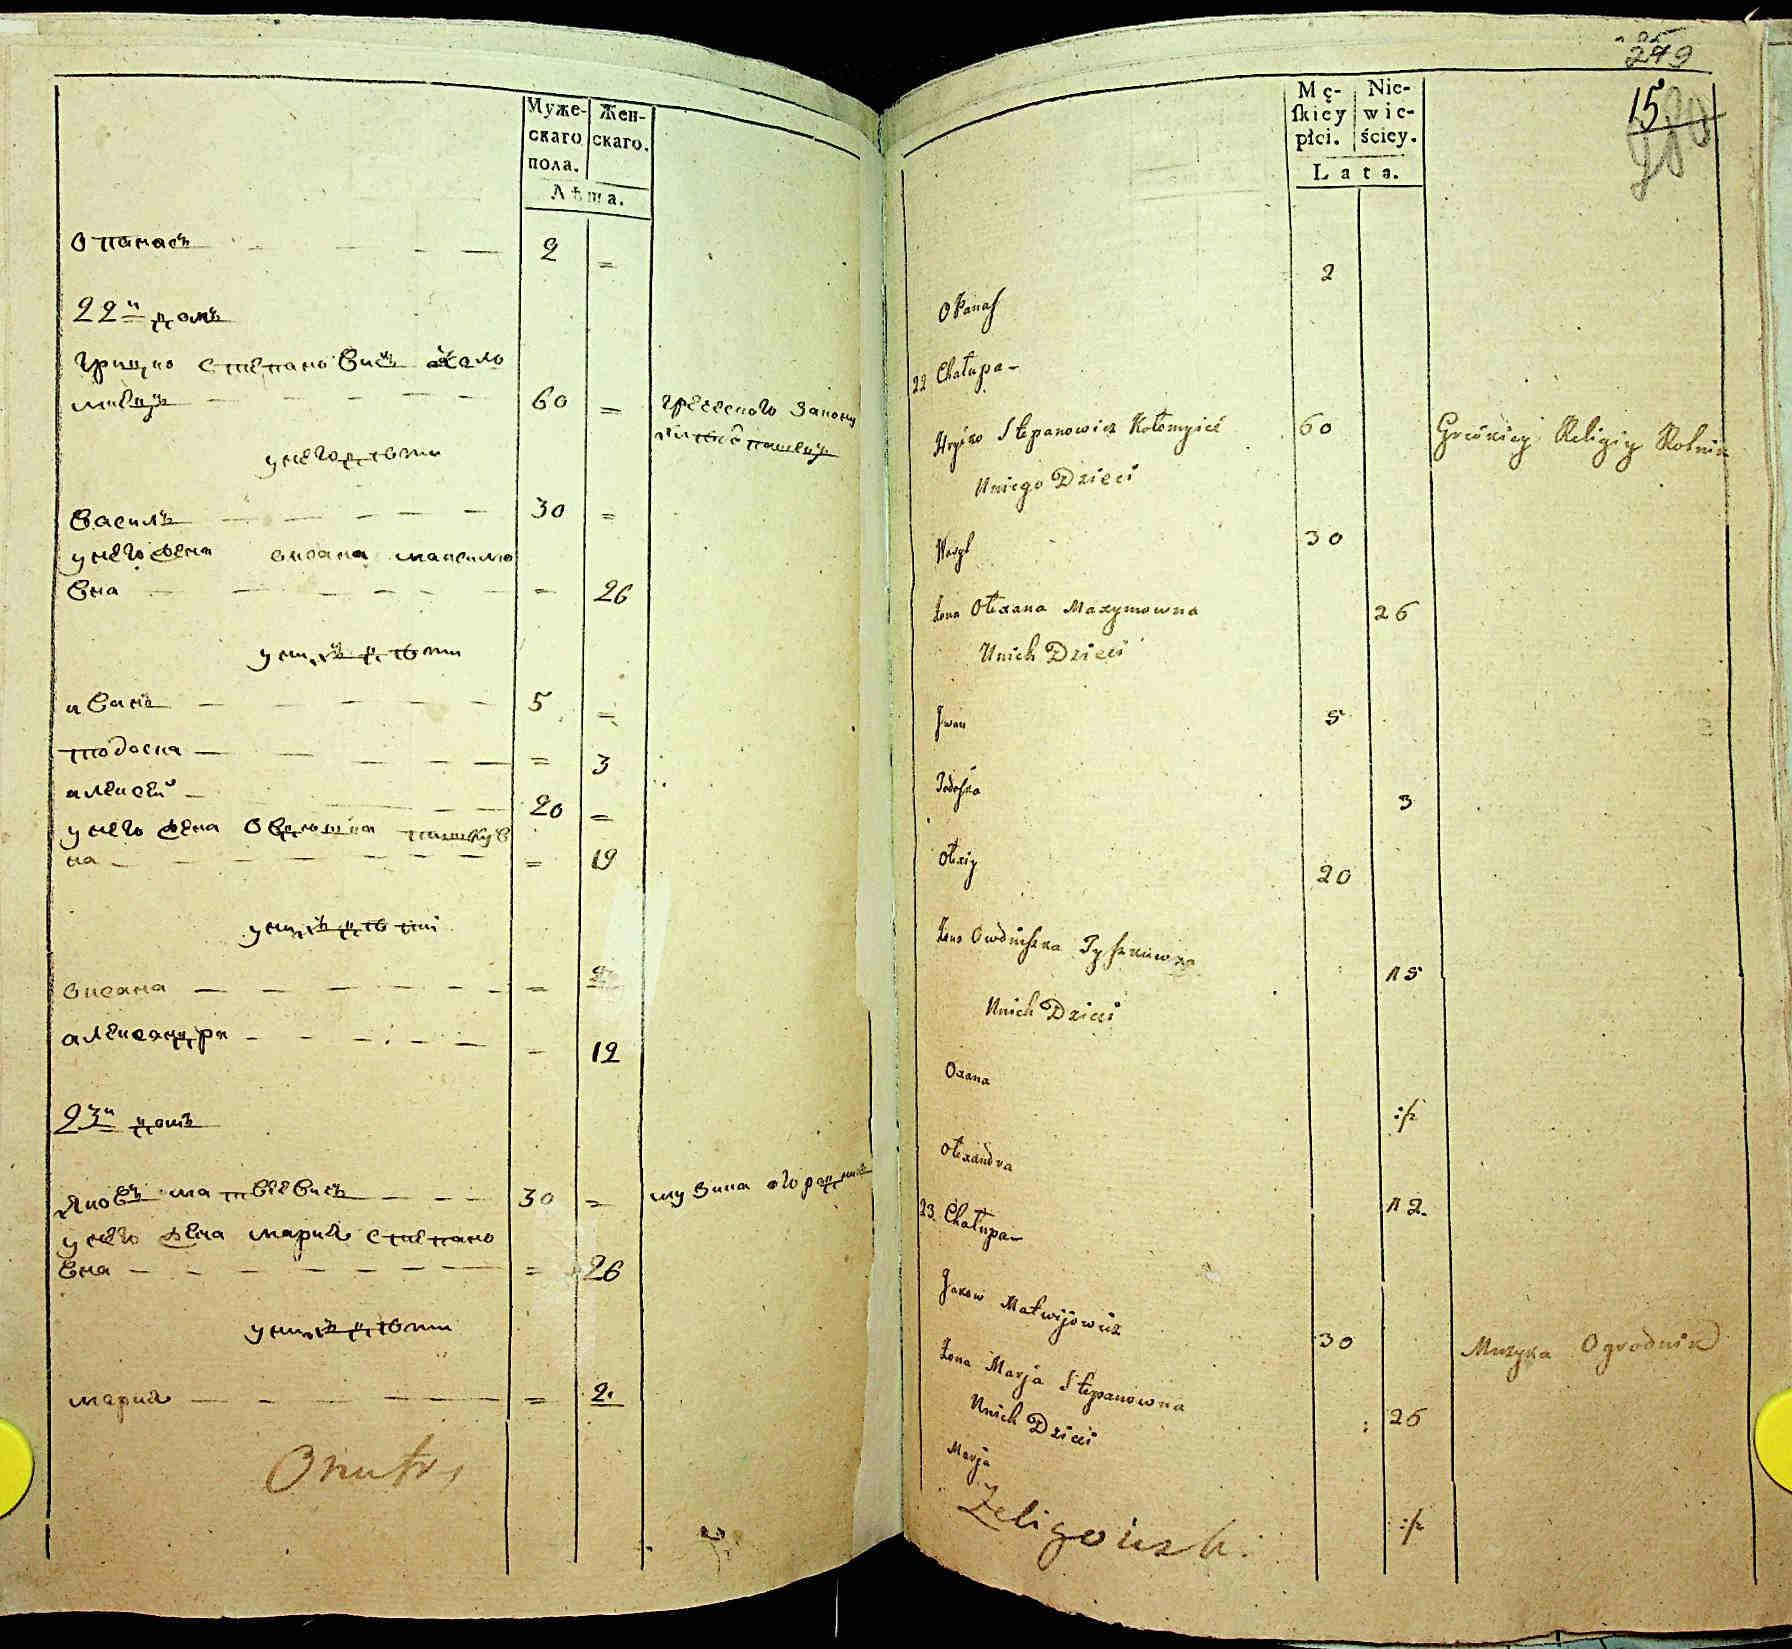 Муже-
скаго
пола.
Жен-
скаго.
Лѣта.
Опанасъ — — — 2 =
22й домъ
Грицко Степановичъ Коло
миецъ — — — 60 = греческого закону
у него дѣти
Василь — — — 30 =
у него жена Оксана Максимо
вна — — — = 26
у нихъ дѣти
иванъ — — — 5 =
тодоска — — — = 3
алексей — — — 20 =
у него жена Овдюшка
на — — — = 19
у нихъ дѣти
Оксана — — — =
александра — — — = 12
23й домъ
Яковъ матвеевичъ — — — 30 = музика огродникъ
у него жена мария степано
вна — — — = 26
у нихъ дѣти
мария — — — = 2.
249
15
280
Mę-
ſkiey
płci.
Nie-
wie-
ściey.
Lata.
Opanas 2
22 Chałupa
Hryćko Stepanowicz Kołomyieć 60 Greckiey Religiy Rolnik
Uniego Dzieci
Wasyl 30
Żona Olexana Maxymowna 26
Unich Dzieci
Jwan 5
Todoſka 3
Olexiy 20
Żona Owduſzka 15
Unich Dzieci
Oxana :/2
Olexandra 12.
23 Chałupa
Jakow Matwijowicz 30 Muzyka Ogrodnik
Żona Marja Stepanowna 26
Unich Dzieci
Marja :/2
Zeligowski